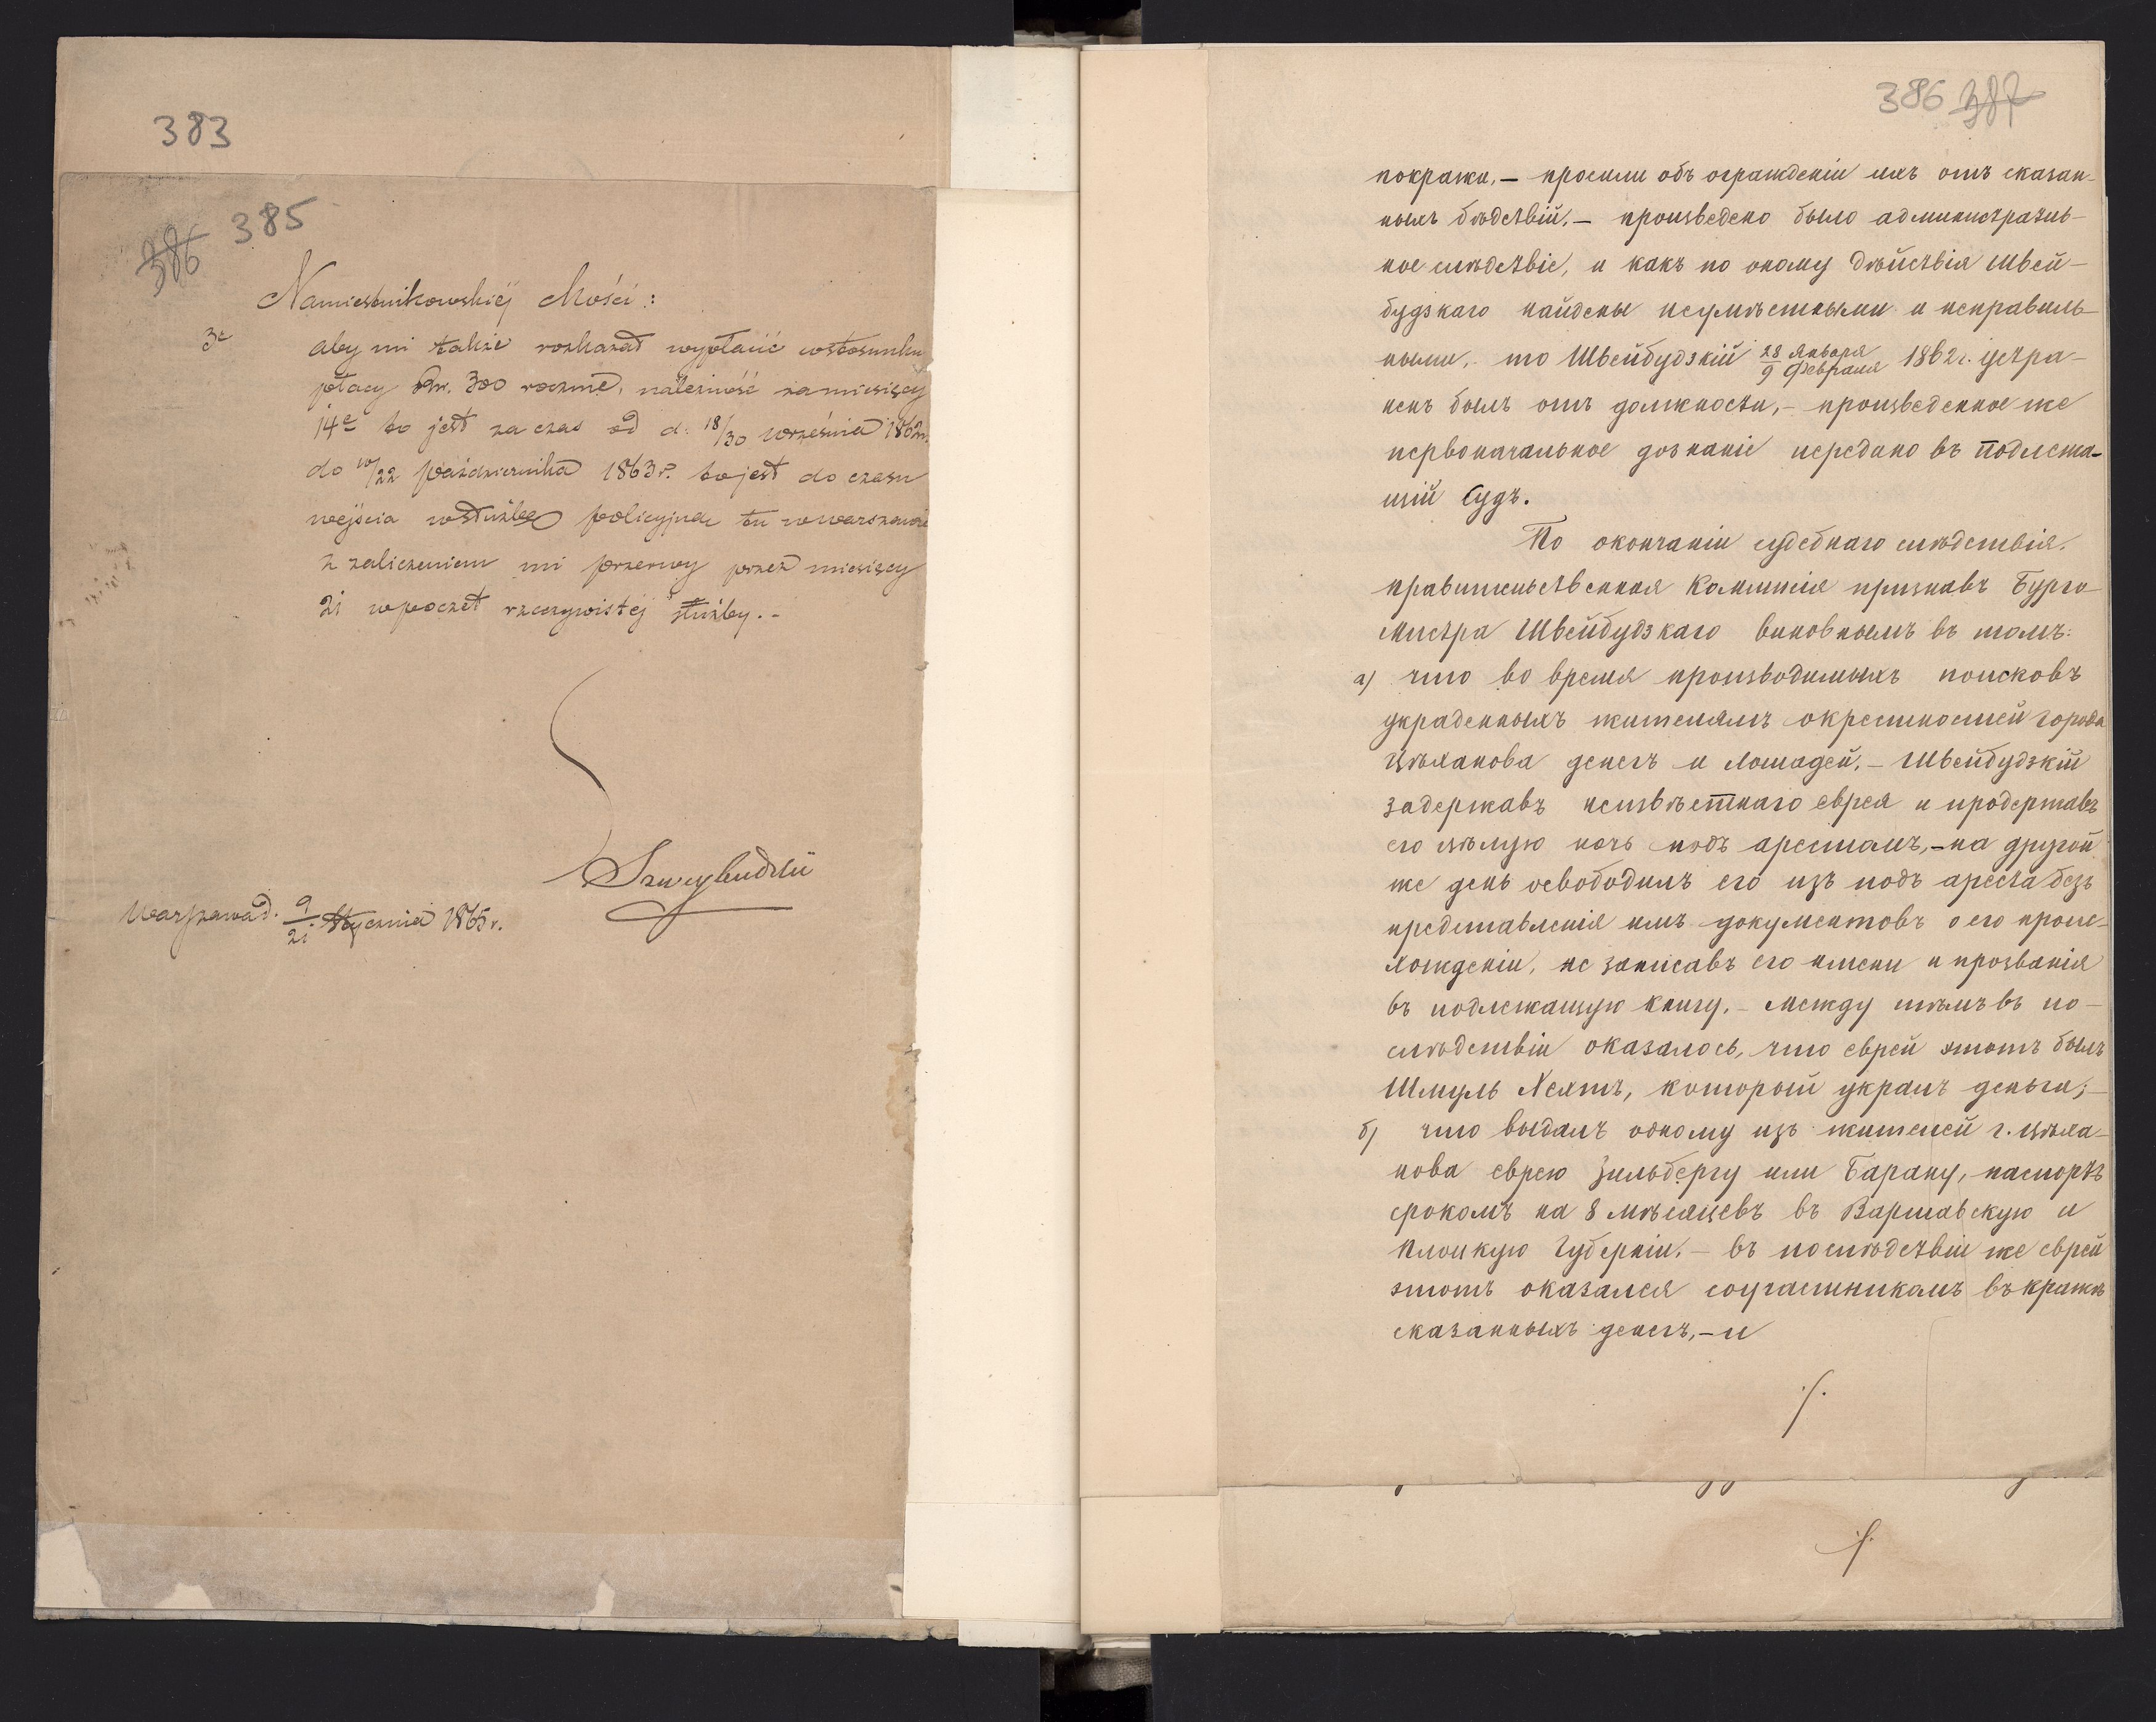 383
385
386
Namiestnikowskiéj Mości:
3e aby mi także rozkazał wypłacić wstosunku
płacy Rsr. 300 rocznie, należność za miesięcy
14e to jest za czas od d. 18/30 Września 1862 r.
do 10/22 Października 1863 r. to jest do czasu
wejścia wsłużbę policyjną tu w Warszawie
z zaliczeniem mi przerwy przez miesięcy
21 wpoczet rzeczywistéj służby.-
Szweybudzki
Warszawa d. 9/21 Stycznia 1865 r.
386 387
покражи,- просили объ огражденіи ихъ отъ сказан-
ныхъ бѣдствій.- произведено было административ-
ное слѣдствіе, и какъ по оному дѣйствія Швей-
будзкаго найдены неумѣстными и неправиль-
ными, то Швейбудзкій 28 Января / 9 Февраля 1862 г. устра-
ненъ былъ отъ должности,- произведенное же
первоначальное дознаніе передано въ подлежа-
щій Судъ.
По окончаніи судебнаго слѣдствія,
Правительственная Коммисія признавъ Бурго-
мистра Швейбудзкаго виновнымъ въ томъ:
а) что во время производимыхъ поисковъ
украденныхъ жителямъ окрестностей города
Цѣханова денегъ и лошадей,- Швейбудзкій
задержавъ неизвѣстнаго еврея и продержавъ
его цѣлую ночь подъ арестомъ,- на другой
же день освободилъ его изъ подъ ареста безъ
представленія имъ документовъ о его проис-
хожденіи, не записавъ его имени и прозванія
въ подлежащую книгу.- Между тѣмъ въ по-
слѣдствіи оказалось, что еврей этотъ былъ
Шмуль Хехтъ, который укралъ деньги;-
б) что выдалъ одному изъ жителей г. Цѣха-
нова еврею Зильбергу или Барану, паспортъ
срокомъ на 8 мѣсяцевъ въ Варшавскую и
Плоцкую Губерніи.- въ послѣдствіи же еврей
этотъ оказался соучастникомъ въ кражѣ
сказанныхъ денегъ,- и
./.
./.